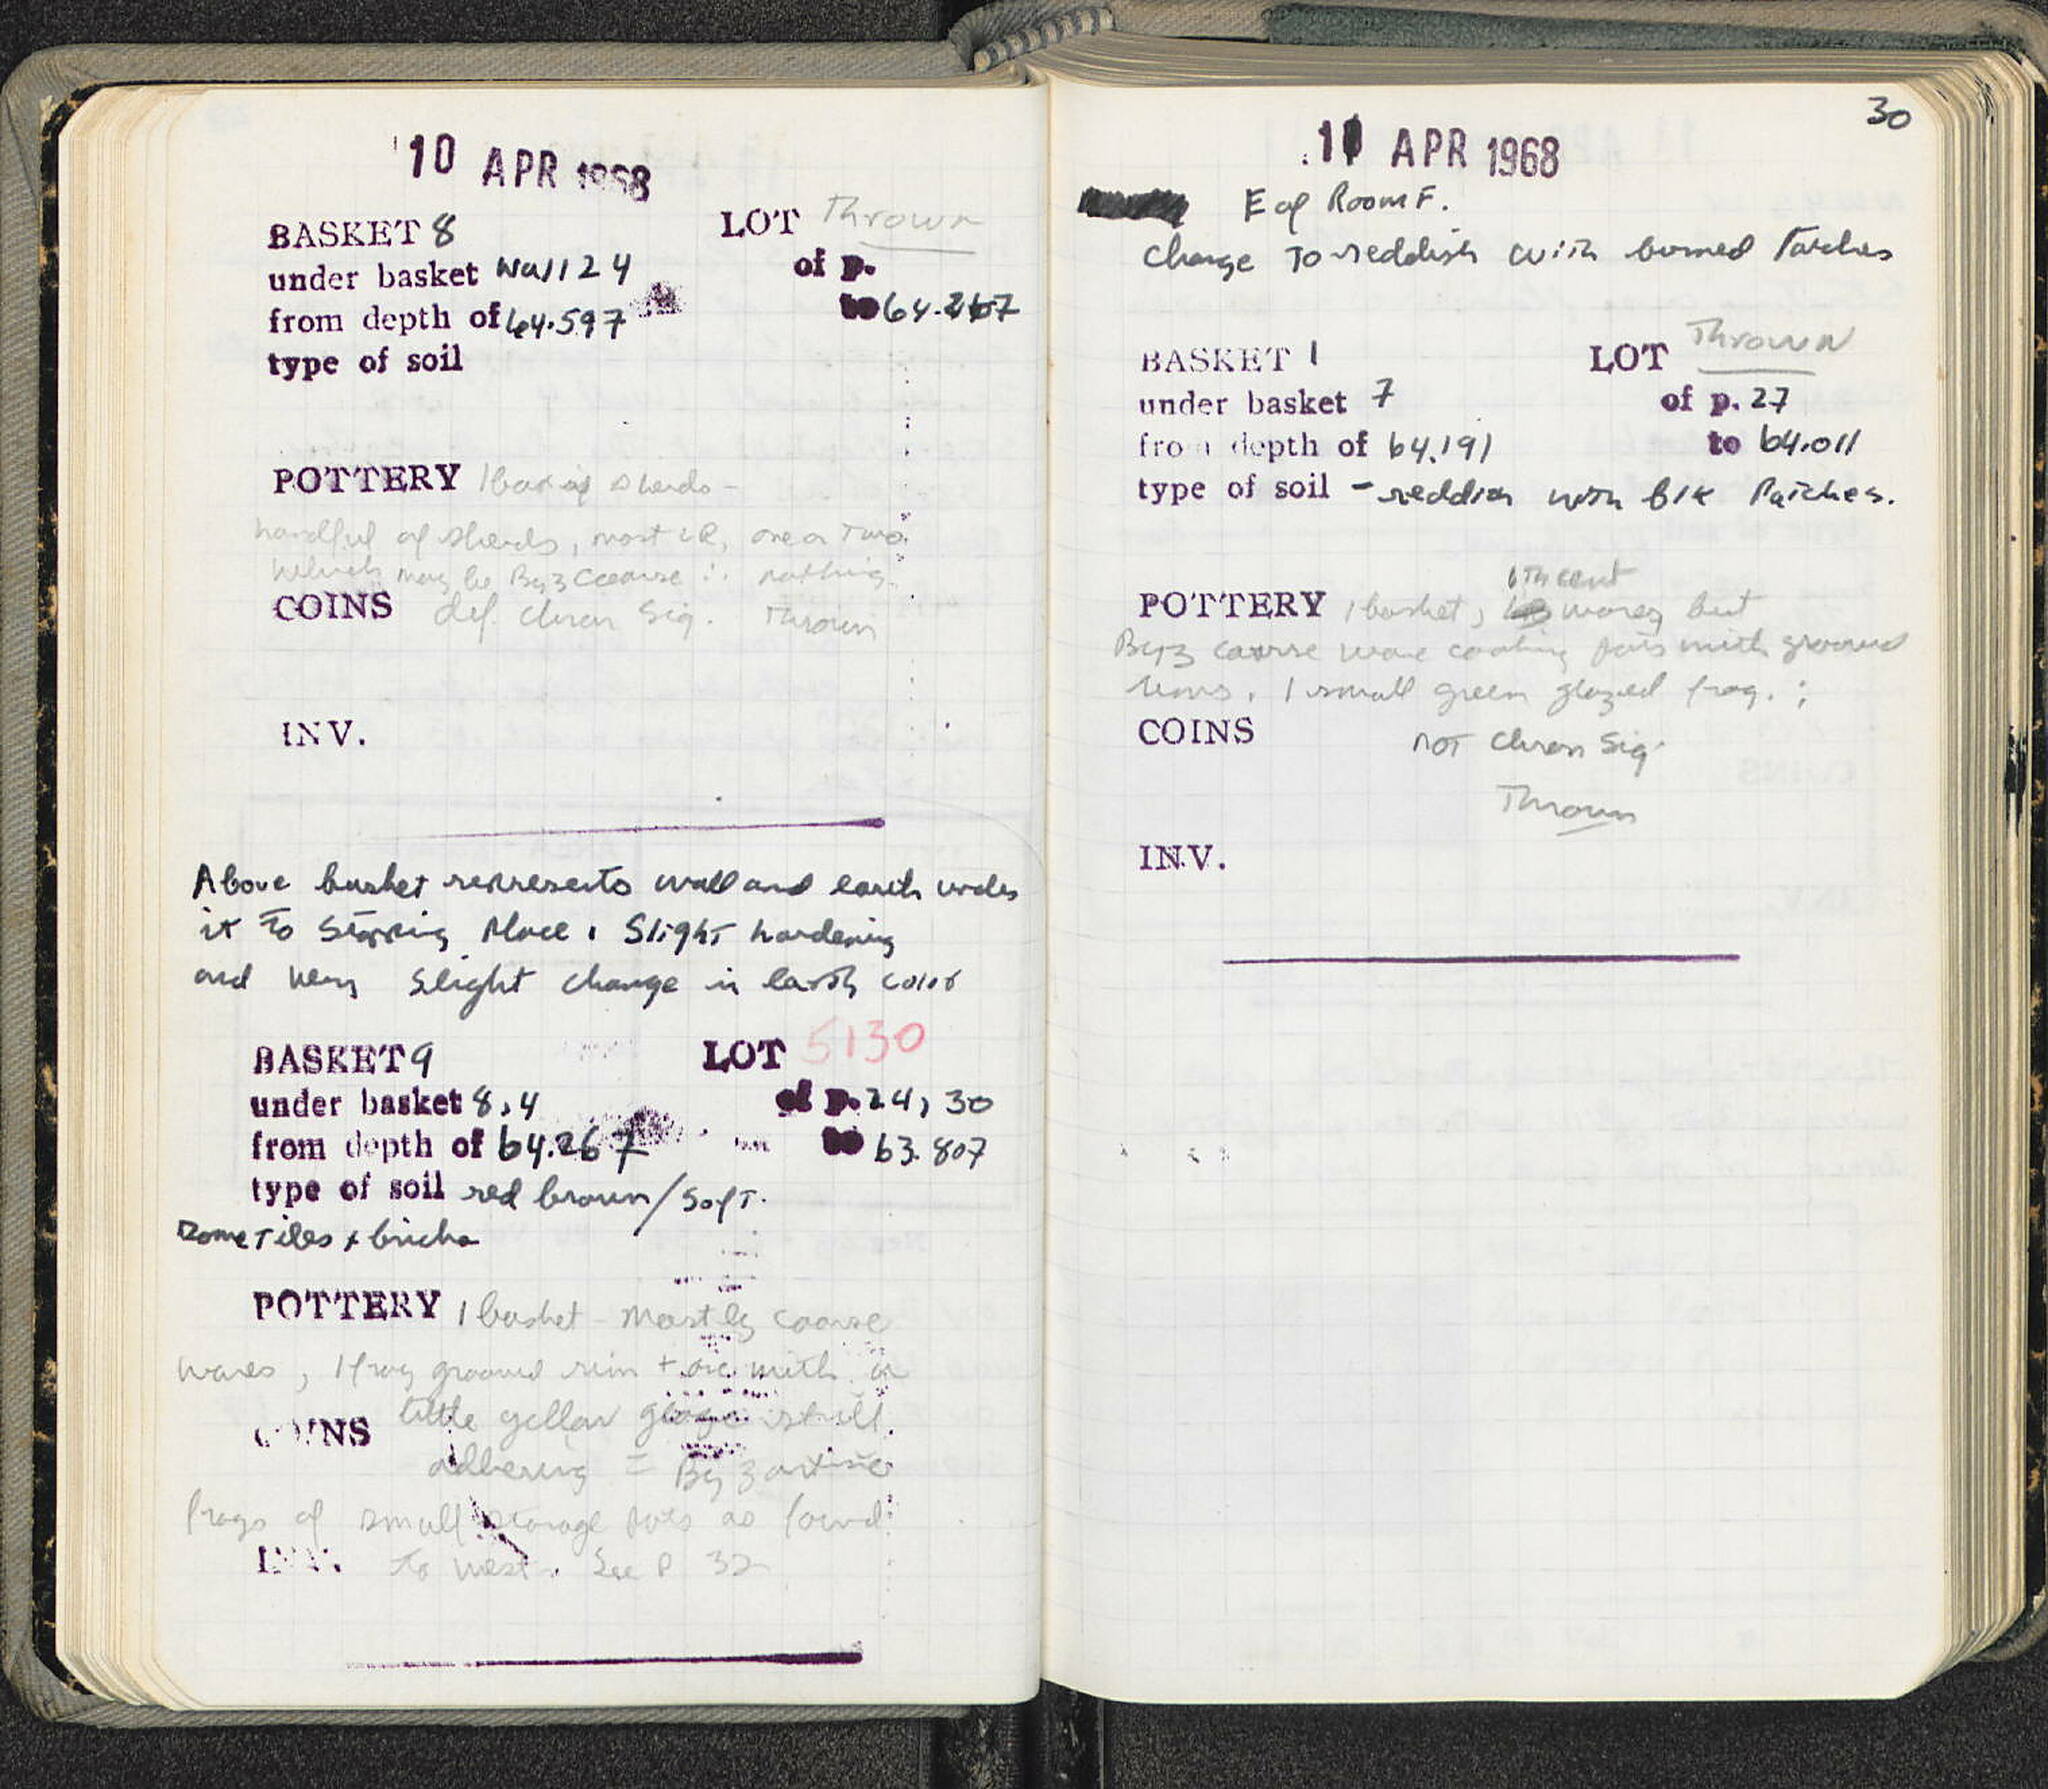 10 APR 1968
BASKET 8 LOT Thrown
under basket Wall 24 of p.
from depth of 64.597 to 64.267
type of soil
POTTERY 1 bag sherds -
handful of sherds, most LR, one or two
which may be Byz coarse ∴ nothing
COINS def. chron sig. Thrown
INV.
Above basket represents wall and earth under
it to stopping place. Slight hardening
and very slight change in earth color
BASKET 9 LOT 5130
under basket 8, 4 of p. 24, 30
from depth of 64.267 to 63.807
type of soil red brown / soft.
some tiles + bricks
POTTERY 1 basket - mostly coarse
wares, 1 frag grooved rim + one with a
little yellow glaze still
COINS
adhering = Byz
frags of small storage pots as found
INV. to west. See P 32
30
11 APR 1968
E of Room F.
Change to reddish with burned patches
BASKET 1 LOT Thrown
under basket 7 of p. 27
from depth of 64.191 to 64.011
type of soil - reddish with blk patches.
POTTERY 1 basket, wares but
Byz coarse ware cooking pots with grooved
rims. 1 small green glazed frag. ;
COINS not chron sig.
Thrown
INV.